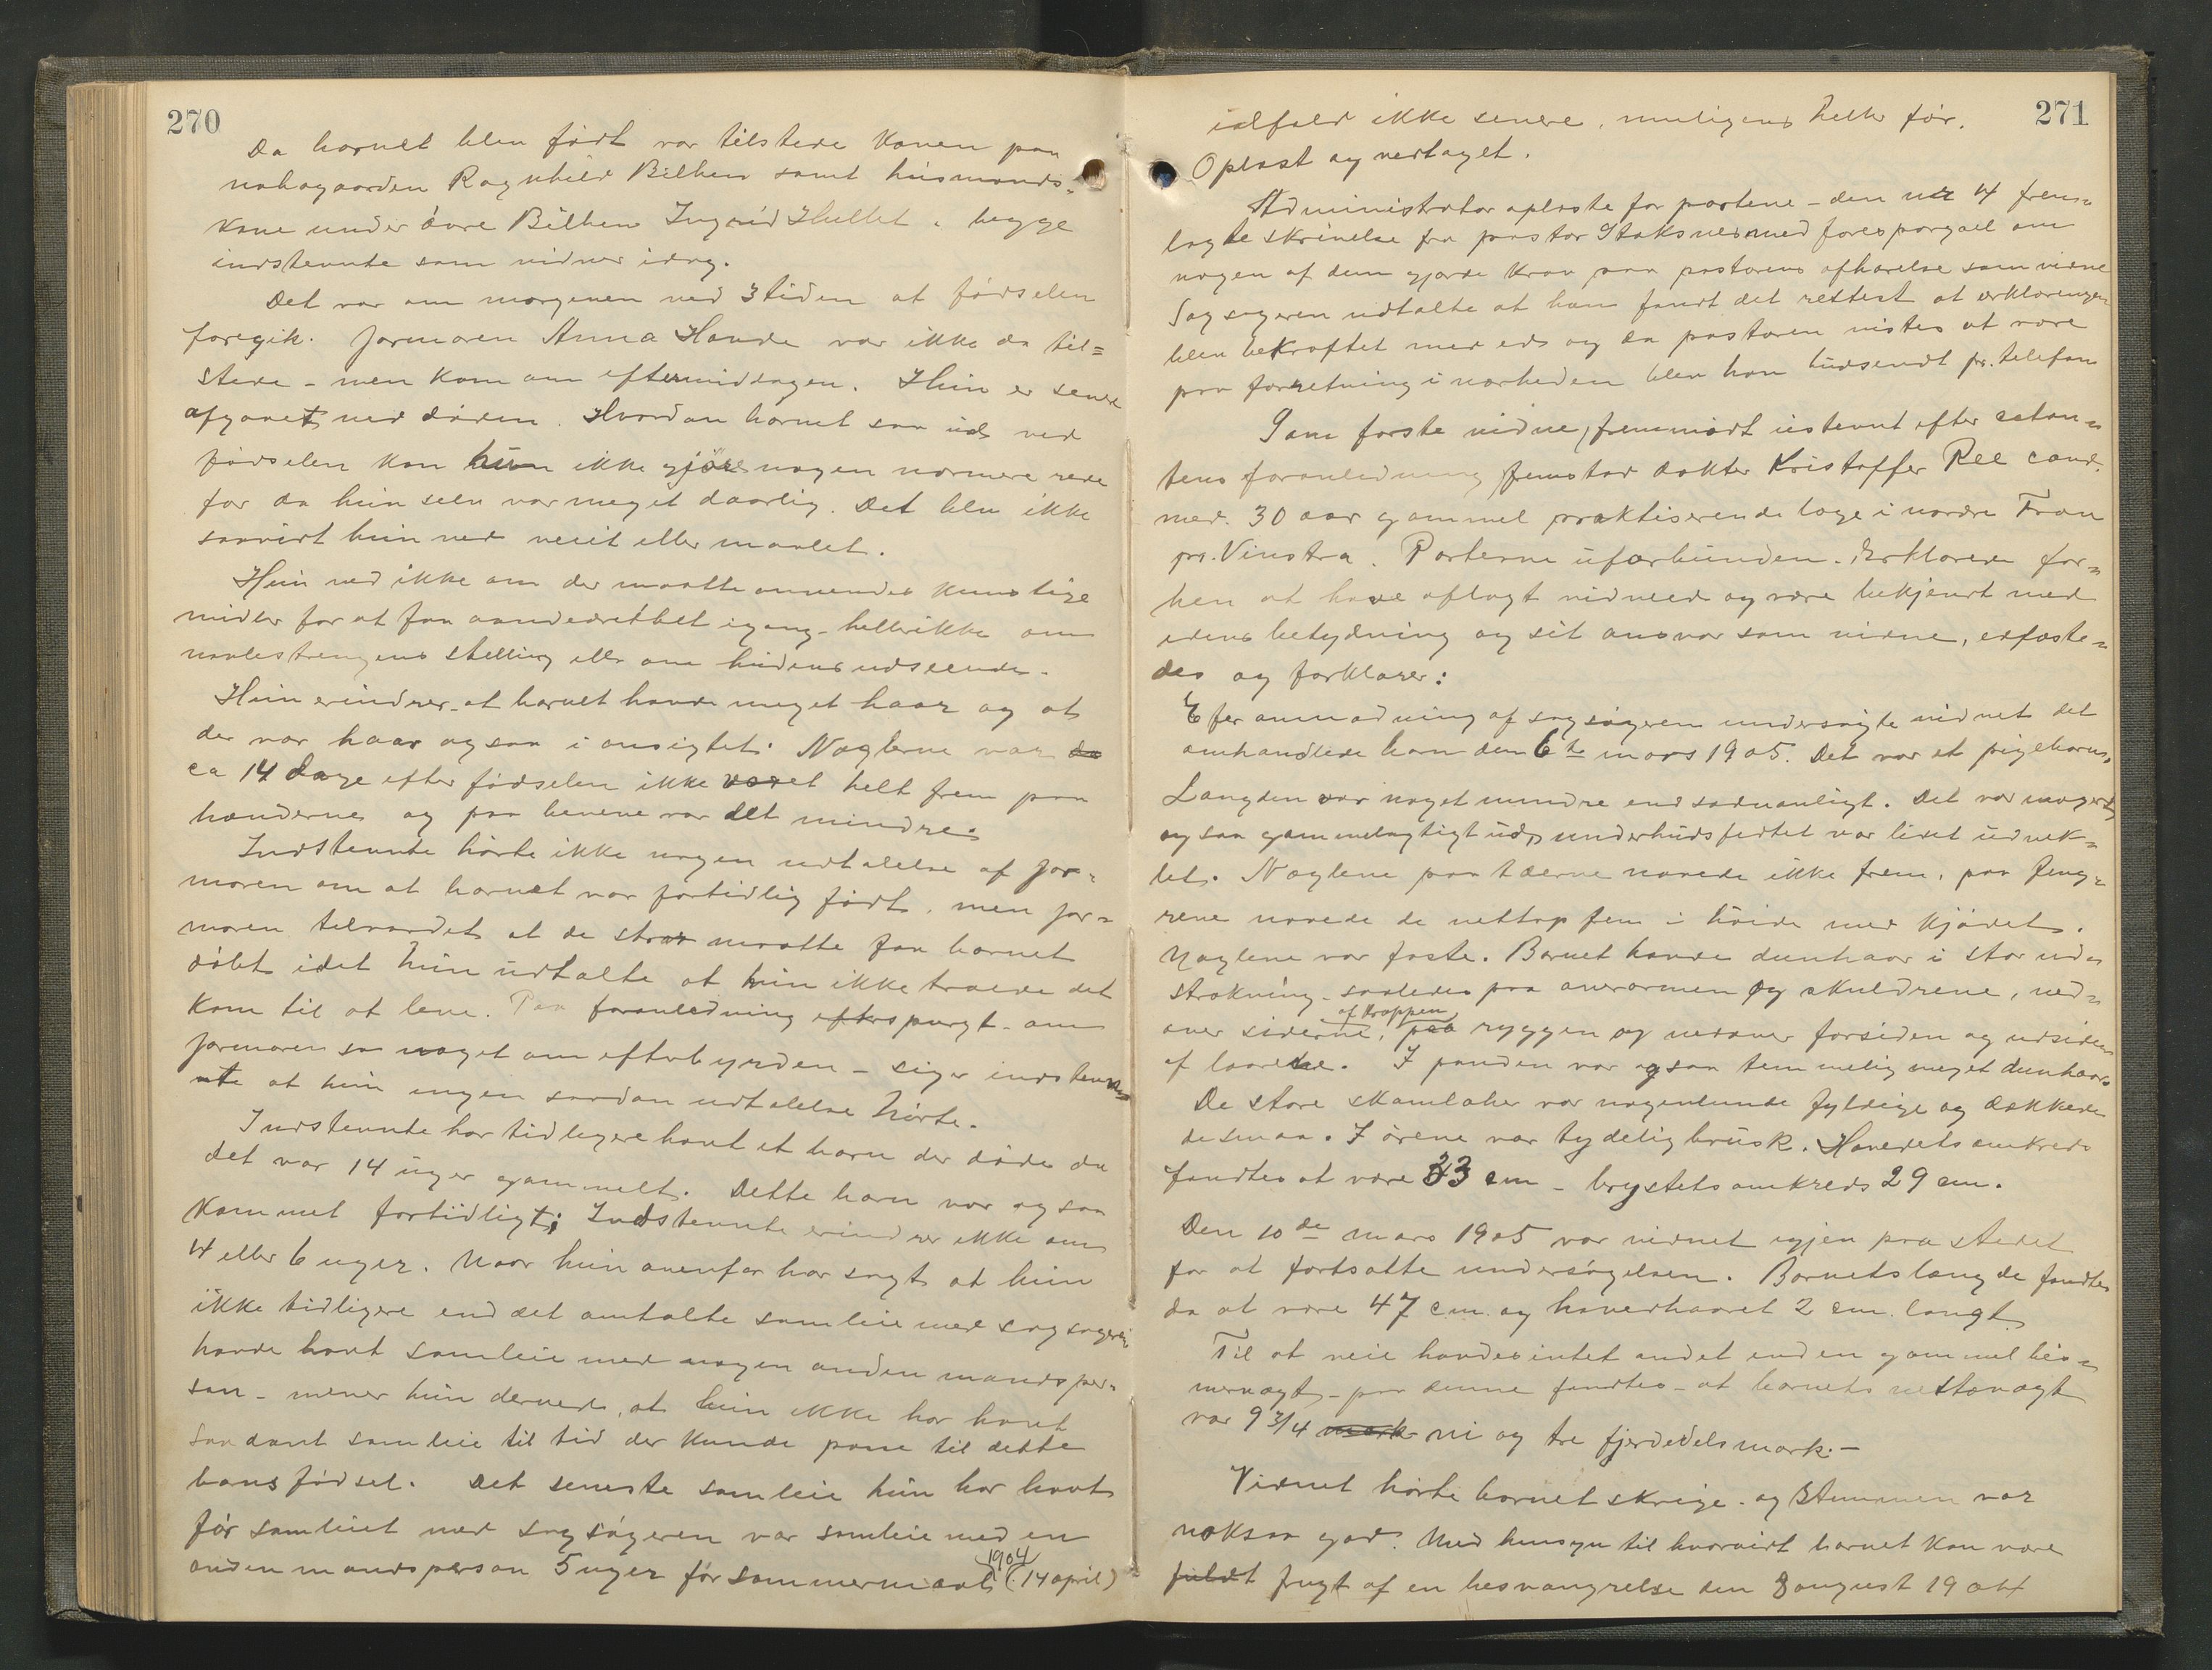 270
Da barnet blev født var tilstede konen paa
nabogaarden Ragnhild Bilben samt husmands=
kone under øvre Bilben Ingrid Hullet, begge
indstevnte som vidner idag.
Det var om morgenen ved 3 tiden at fødselen
foregik. Jormoren Anna Havde var ikke da til=
stede - men kom om eftermiddagen. Hun er senere
afgaaet ved døden. Hvordan barnet saa ud ved
fødselen kan hun ikke gjøre nogen nærmere rede
for da hun selv var meget daarlig. Det blev ikke
saavidt hun ved veiet eller maalet.
Hun ved ikke om der maatte anvendes kunstige
midler for at faa aandedrættet igang - heller ikke om
navlestrengens stilling eller om hudens udseende.
Hun erindrer at barnet havde meget haar og at
der var haar ogsaa i ansigtet. Neglerne var da
ca 14 dage efter fødselen ikke voxet helt frem paa
hænderne og paa benene var det mindre.
Indstevnte hørte ikke nogen udtalelse af jor=
moren om at barnet var fortidlig født, men jor=
moren tilraadet at de strax maatte faa barnet
døbt idet hun udtalte at hun ikke troede det
kom til at leve. Paa foranledning efterspurgt om
jormoren sa noget om efterbyrden - siger indstevn=
nte at hun ingen saadan udtalelse hørte.
Indstevnte har tidligere havt et barn der døde da
det var 14 uger gammelt. Dette barn var ogsaa
kommet fortidligt; Indstevnte erindrer ikke om
4 eller 6 uger. Naar hun ovenfor har sagt at hun
ikke tidligere end det omtalte samleie med sagsøgeren
havde havt samleie med nogen anden mandsper=
son - mener hun derved, at hun ikke har havt
saadant samleie til tid der kunde passe til dette
barns fødsel. Det seneste samleie hun har havt
før samleiet med sagsøgeren var samleie med en
1904
anden mandsperson 5 uger før sommermaal (14 april)
271
ialfald ikke senere, muligens heller før.
Oplæst og vedtaget.
Administrator oplæste for partene - den under 4 frem=
lagte skrivelse fra pastor Staksnes med forespørgsel om
nogen af dem gjorde krav paa pastorens afhørelse som vidne
Sagsøgeren udtalte at han fandt det rettest at erklæringen
blev bekræftet med ed og da pastoren vistes at være
paa forretning i nærheden blev han budsendt pr. telefon
Som første vidne, fremmødt ustevnt efter citan=
tens foranledning fremstod doktor Kristoffer Ree cand.
med. 30 aar gammel praktiserende læge i nordre Fron
pr. Vinstra. Parterne uforbunden. Erklærede for=
hen at have aflagt vidneed og være bekjendt med
edens betydning og sit ansvar som vidne, edfæste=
des og forklarer:
Efter anmodning af sagsøgeren undersøgte vidnet det
omhandlede barn den 6te mars 1905. Det var et pigebarn.
Længden var noget mindre end sædvanligt. Det var magert
og saa gammelagtigt ud, underhudsfedtet var lidet udvik=
let. Neglene paa tæerne naaede ikke frem, paa fing=
rene naaede de nettop frem i høide med kjødet.
Neglene var faste. Barnet havde dunhaar i stor ud=
strækning - saaledes paa overarmen og skuldrene, ned=
af kroppen
over siderne, paa ryggen og nedover forsiden og udsiden
af laarene. I panden var ogsaa temmelig meget dunhaar.
De store skamlæber var nogenlunde fyldige og dækkede
de smaa. I ørene var tydelig brusk. Hovedets omkreds
fandtes at være 33 cm - brystets omkreds 29 cm.
Den 10de mars 1905 var vidnet igjen paa stedet
for at fortsætte undersøgelsen. Barnets længde fandtes
da at være 47 cm. og hovedhaaret 2 cm. langt
Til at veie havdes intet andet end en gammel bis=
mervægt - paa denne fandtes - at barnets nettovægt
var 9 3/4 mark ni og tre fjerdedels mark. -
Vidnet hørte barnet skrige - og Stemmen var
noksaa god. Med hensyn til hvorvidt barnet kan være
fuldt frugt af en besvangrelse den 8 august 1904